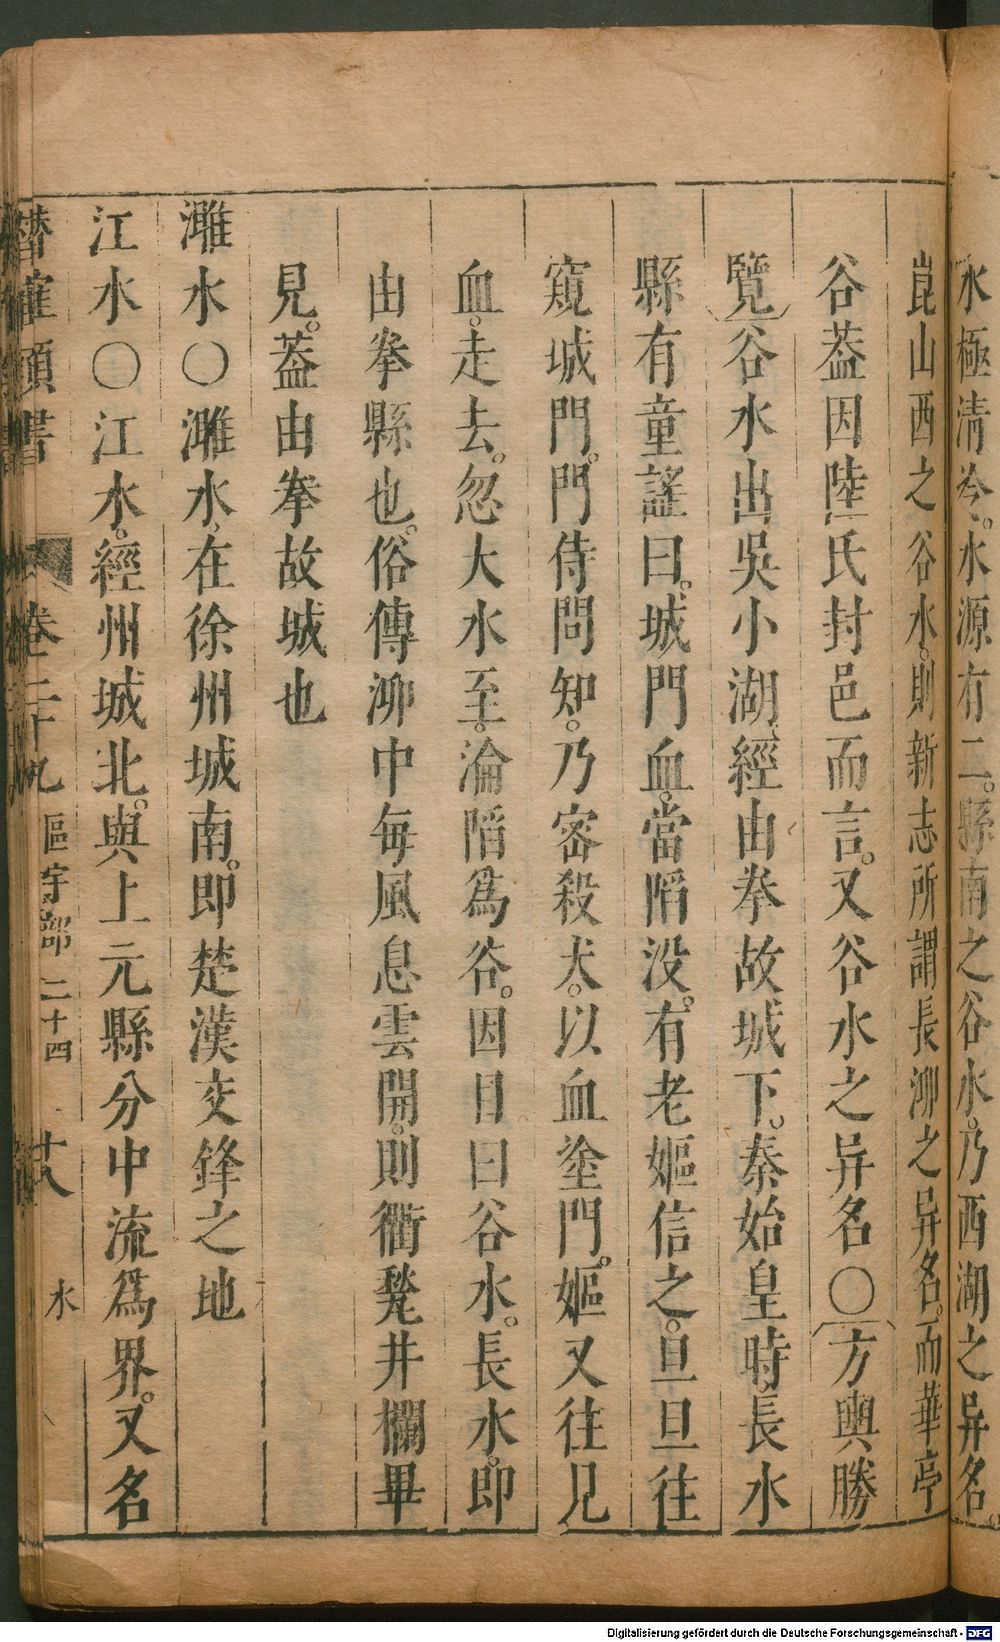 水極淸冷。水源有二。縣南之谷水。乃西湖之异名。
崑山西之谷水。則新志所謂長泖之异名。而華亭
谷葢因陸氏封邑而言。又谷水之异名〇方輿勝
覽谷水出吳小湖經由拳故城下。秦始皇時長水
縣有童謠曰。城門血。當陷没。有老嫗信之。旦旦往
窺城門。門侍問知。乃密殺犬。以血塗門。嫗又往見
血。走去。忽大水至。淪陷爲谷。因目曰谷水。長水。即
由拳縣也。俗傳泖中每風息雲開。則衢甃井欄畢
見。葢由拳故城也
濉水〇濉水在徐州城南。即楚漢交鋒之地
江水〇江水。經州城北。與上元縣分中流爲界。又名
潛確類書 卷二十九 區宇部二十四 十八 水
Digitalisierung gefördert durch die Deutsche Forschungsgemeinschaft - DFG